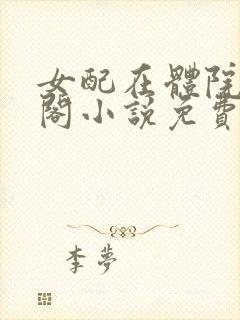 女配在體院
閣小説免費
李夢